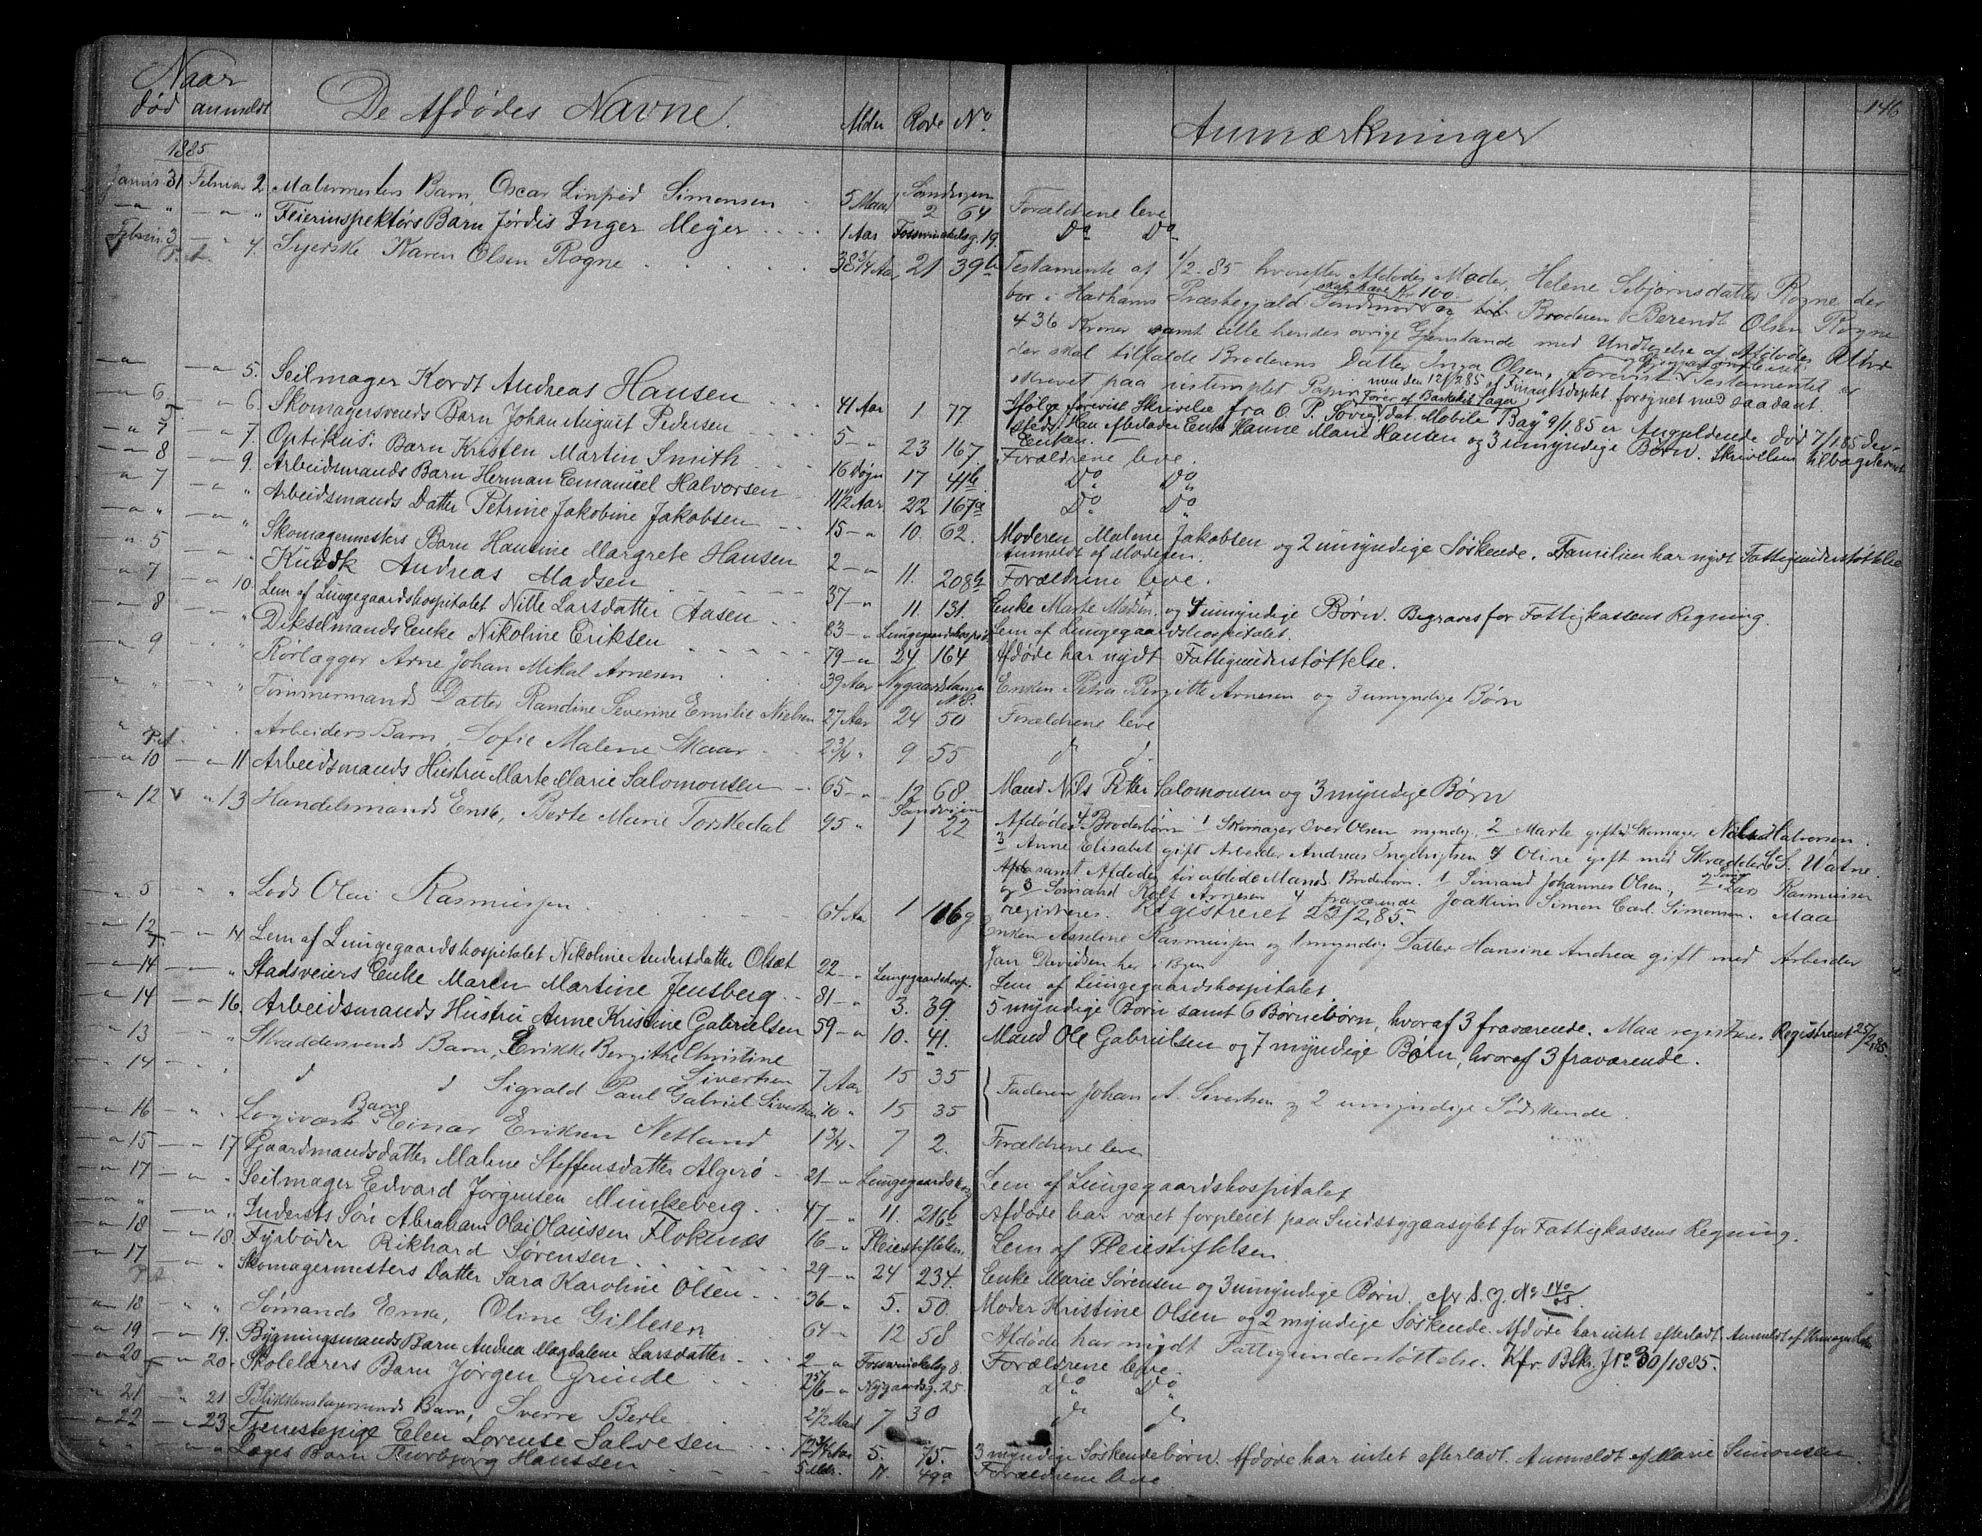 Naar
død anmeldt De Afdødes Navne. Alder Rode No. Anmærkninger 146
1885
Januar 31 Februar 2. Malermesters Barn, Oscar Linfred Simonsen 5 Maan Sandvigen 2 64 Forældrene leve
— " — " Feierinspektørs Barn Jørdis Inger Meyer 1 Aar Fosswinckelsg. 19. Do Do
Febru. 3 — " 4. Syerske Karen Olsen Rogne 38 3/4 Aar 21 39b Testamente af 1/2-85 hvorefter Afdødes Moder, Helene Sebjørnsdatter Rogne der
bor i Harhams Præstegjæld Søndmør skal have Kr 100 og Broderen Berendt Olsen Rogne
436 Kroner samt alle hendes øvrige Gjenstande med Undtagelse af Afdødes
der skal tilfalde Broderens Datter Inga Olsen, Testamentet er
skrevet paa ustemplet Papir men den 12/2.85 af Finantsdeptet forsynet med saadant
— " — " 5. Seilmager Kordt Andreas Hansen 41 Aar 1 77 Ifølge forevist Skrivelse fra O. P. dat. Mobile Bay 9/1.85 er Angjeldende død 7/1.85 der-
sted. Han efterlader Enke Hanne Marie Hansen og 3 umyndige Børn. Skrivelsen tilbageleveret
Enken.
" 6 — " 6. Skomagersvends Barn Johan August Pedersen 5 — " 23 167 Forældrene leve.
" 7 — " 7. Optikus. Barn Kristen Martin Smith 16 Døgn 17 41b Do Do
" 8 — " 9. Arbeidsmands Barn Herman Emanuel Halvorsen 1 1/2 Aar 22 167a Do Do
" 7 — " " Arbeidsmands Datter Petrine Jakobine Jakobsen 15 — " 10. 62. Moderen Malene Jakobsen og 2 umyndige Søskende. Familien har nydt Fattigunderstøttelse
Anmeldt af Moderen.
" " — " " Skomagermesters Barn Hansine Margrete Hansen 2 — " 11. 208b Forældrene leve.
" 5 — " " Kudsk Andreas Madsen 37 — " 11. 131. Enke Marte Madsen og 4 umyndige Børn. Begraves for Fattigkassens Regning.
" 7 — " 10. Lem af Lungegaardshospitalet Nille Larsdatter Aasen 83 — " Lungegaardshospit. Lem af Lungegaardshospitalet.
" 8 — " " Dikselmands Enke Nikoline Eriksen 79 — " 24 164 Afdøde har nydt Fattigunderstøttelse.
" 9 — " " Rørlægger Arne Johan Mikal Arnesen 39 Aar Nygaardstangen Enken Petra Bergitte Arnesen og 3 umyndige Børn
" " " " Tømmermands Datter Randine Severine Emilie Nielsen 27 Aar 24 50 Forældrene leve
" " " " Arbeiders Barn, Sofie Malene Skaar 2 3/4 " 9 55 d d.
" 10 — " 11 Arbeidsmands Hustru Marte Marie Salomonsen 65 — " 12 68 Mand Nils Petter Salomonsen og 3 myndige Børn
" 12 — " 13 Handelsmands Enke, Berte Marie Torskedal 95 " Sandvigen 1 22 Afdødes 4 Broderbørn 1 Skomager Iver Olsen myndig, 2 Marte gift Skomager Nils Halvorsen.
3 Anne Elisabet gift Arbeider Andreas Ingebrigtsen 4 Oline gift med Skrædder S. Uatne.
samt Afdødes før afdøde Mands Broderbørn. 1 Sømand Johannes Olsen, 2 Lars Rasmussen
og 3 Sømand Rolf Arnesen 4 fraværende Joakim Simon Carl Simonsen. Maa
registreres. Registreret 23/2.85.
— " 5 " " Lods Olai Rasmussen 64 Aar 1 116g Enken Asseline Rasmussen og 1 myndig Datter Hansine Andrea gift med Arbeider
Jan Davidsen her i Byen
" 12 — " 14 Lem af Lungegaardshospitalet Nikoline Andersdatter Olset 22 — " Lungegaardshosp. Lem af Lungegaardshospitalet
" 14 — " " Stadsveiers Enke Maren Martine Jensberg 81 — " 3. 39. 5 myndige Børn samt 6 Børnebørn, hvoraf 3 fraværende. Maa registreres Registreret 25/2.85.
" 14 — " 16. Arbeidsmands Hustru Anne Kristine Gabrielsen 59 — " 10. 41. Mand Ole Gabrielsen og 7 myndige Børn, hvoraf 3 fraværende.
" 13 " " Skræddersvends Barn, Erikke Bergithe Christine
Sivertsen 7 Aar 15 35
" 14 " " d d Sigvald Paul Gabriel Sivertsen 10 " 15 35 } Faderen Johan A. Sivertsen og 2 umyndige Sødskende.
" 16 " " Logivært Barn Einar Eriksen Netland 1 3/4 " 7 2. Forældrene leve
" 15 — " 17 Gaardmandsdatter Malene Steffensdatter Algerø 21 — " Lungegaardshosp Lem af Lungegaardshospitalet
" 17 — " " Seilmager Edvard Jørgensen Munkeberg 47 — " 11. 216b Afdøde har været forpleiet paa Sindssygeasylet for Fattigkassens Regning.
" " — " " Inderst's Søn Abraham Olai Olaussen Floknæs 16 — " Pleiestiftelsen Lem af Pleiestiftelsen
" 18 — " 18. Fyrbøder Rikhard Sørensen 29 — " 24 234. Enke Marie Sørensen og 3 umyndige Børn. cfr S. J. No 140/85.
" 17 — " " Skomagermesters Datter Sara Karoline Olsen 36 — " 5. 50. Moder Kristine Olsen og 2 myndige Søskende. Afdøde har intet efterladt. Anmeldt af
" 18 " " Sømands Enke, Oline Gillesen 64 — " 12 58 Afdøde har nydt Fattigunderstøttelse. Kfr. Bsk. J No 30/1885.
" 19 — " 19. Bygningsmands Barn Andrea Magdalene Larsdatter 2 — " Fosswinckelsg 8. Forældrene leve.
" 20 — " 20. Skolelærers Barn Jørgen Grinde 2 5/6 — " Nygaardsg. 25 Do Do
" 21 " 21 Blikkenslagersvends Barn, Sverre Berle 2 1/2 Maan 7 30 d d
" 22 — " 23. Tjenestepige Elen Lorense Salvesen 5. 75. 3 myndige Søskendebørn. Afdøde har intet efterladt. Anmeldt af Marie Simonsen.
" " — " " Læges Barn Thorbjørg Hanssen 17 49a Forældrene leve